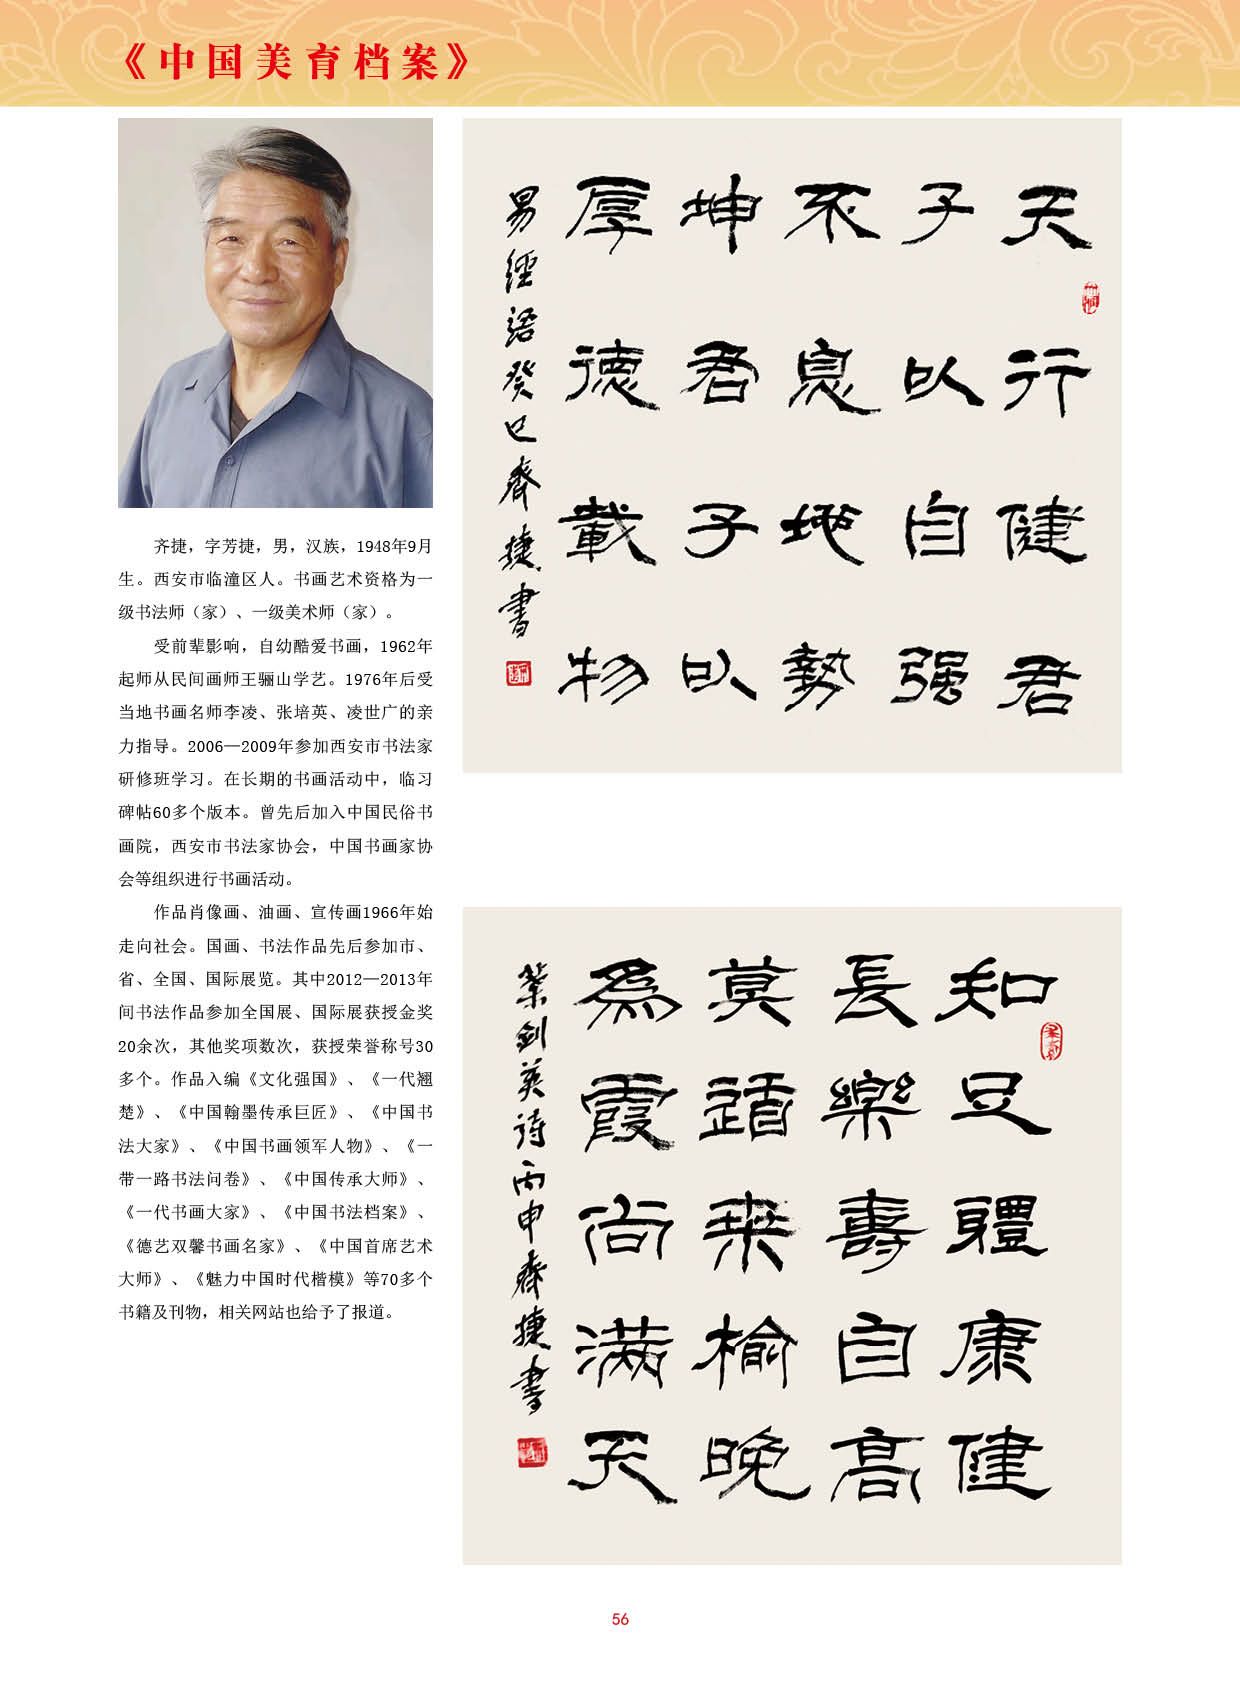 《中国美育档案》
齐捷，字芳捷，男，汉族，1948年9月
生。西安市临潼区人。书画艺术资格为一
级书法师（家）、一级美术师（家）。
受前辈影响，自幼酷爱书画，1962年
起师从民间画师王骊山学艺。1976年后受
当地书画名师李凌、张培英、凌世广的亲
力指导。2006—2009年参加西安市书法家
研修班学习。在长期的书画活动中，临习
碑帖60多个版本。曾先后加入中国民俗书
画院，西安市书法家协会，中国书画家协
会等组织进行书画活动。
作品肖像画、油画、宣传画1966年始
走向社会。国画、书法作品先后参加市、
省、全国、国际展览。其中2012—2013年
间书法作品参加全国展、国际展获授金奖
20余次，其他奖项数次，获授荣誉称号30
多个。作品入编《文化强国》、《一代翘
楚》、《中国翰墨传承巨匠》、《中国书
法大家》、《中国书画领军人物》、《一
带一路书法问卷》、《中国传承大师》、
《一代书画大家》、《中国书法档案》、
《德艺双馨书画名家》、《中国首席艺术
大师》、《魅力中国时代楷模》等70多个
书籍及刊物，相关网站也给予了报道。
天行健君
子以自强
不息地勢
坤君子以
厚德載物
易經語癸巳齊捷書
知足體康健
長樂壽自高
莫道桑榆晚
為霞尚滿天
葉劍英詩丙申齊捷書
56